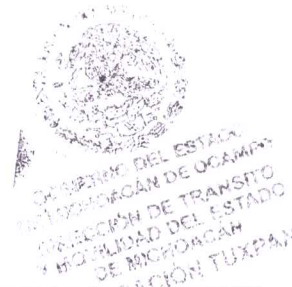 GOBIERNO DEL ESTADO
DE MICHOACÁN DE OCAMPO
DIRECCIÓN DE TRANSITO
Y MOVILIDAD DEL ESTADO
DE MICHOACAN
TUXPAN